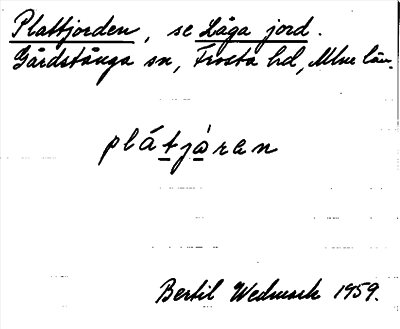 Plattjorden, se Låga jord.
Gårdstånga sn, Frosta hd, Mlm län.
plátjàran
Bertil Wedmark 1959.